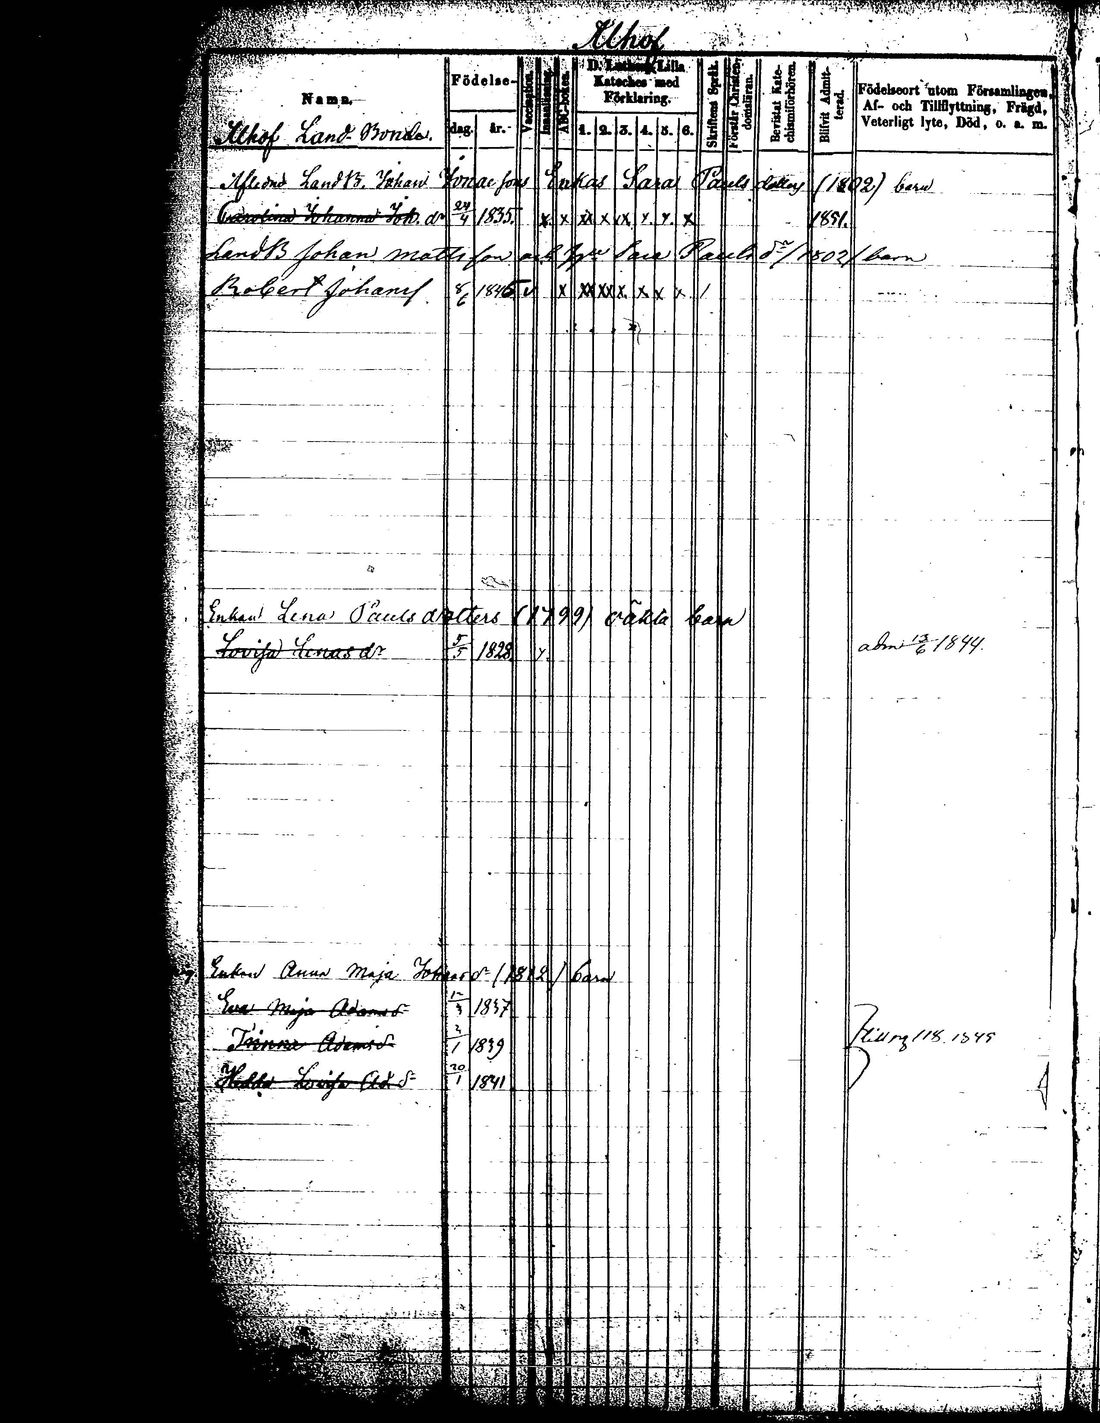 Alhof
Namn.
Födelse-
dag. år.
Vaccination.
Innanläsning.
ABC-boken.
D. Luthers Lilla Kateches med Förklaring.
1. 2. 3. 4. 5. 6.
Skriftens Språk.
Förstår Christendomsläran.
Bevistat Katechismiförhören.
Blifvit Admitterad.
Födelseort utom Församlingen,
Af- och Tillflyttning, Frägd,
Veterligt lyte, Död, o. a. m.
Alhof Land Bonde.
Aflednë Land B. Johan Jonae sons Enkas Sara Pauls dotters (1802) barn
Carolina Johanna Joh. dr 24/4 1835. x x xx x x x x x 1851.
Land B Johan Matts son och Sara Pauls dr /1802/ barn
Robert Johans 8/6 1845 v x xx xx x x x x /
Enkan Lena Pauls dotters (1799) oäkta barn
Lovisa Lenas dr 5/5 1828 x adm 13/6 1844.
Enkan Anna Maja dr (1812) barn
Eva Maja Adams dr 1837
Adams dr 2/1 1839
Hedda Lovisa Ad dr 20/1 1841